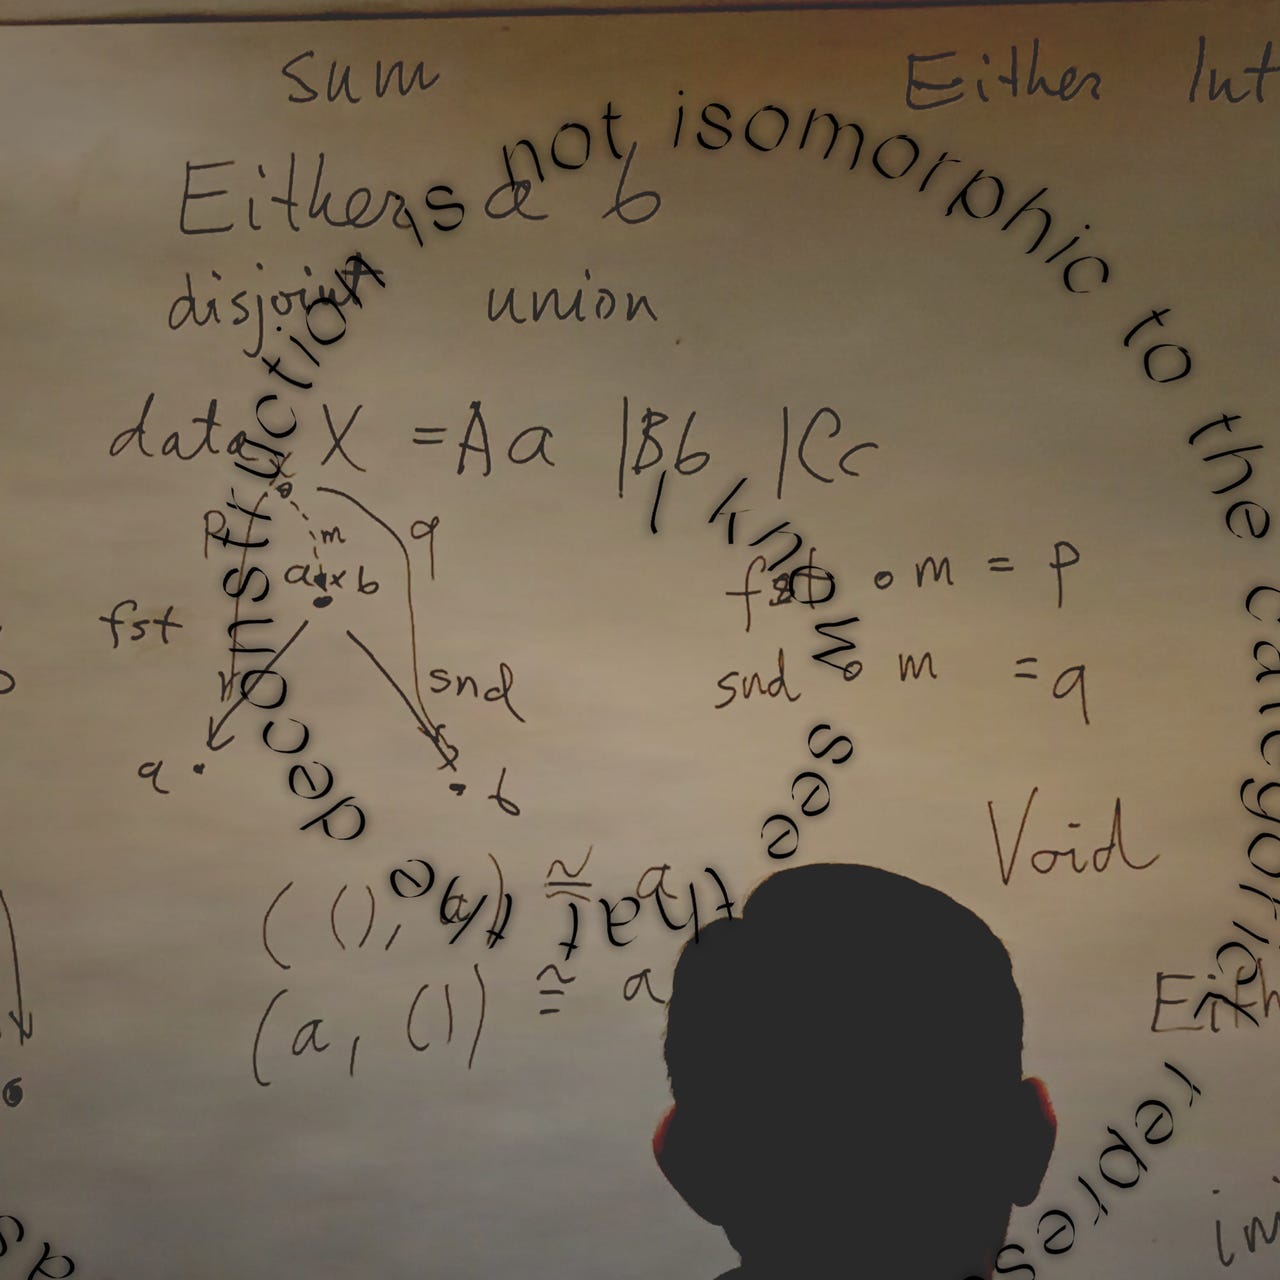 sum
Either Int
Either a b
disjoint union
data X = A a | B b | C c
p
m
q
a × b
fst
snd
a
b
fst ∘ m = p
snd ∘ m = q
Void
((), a) ≅ a
(a, ()) ≅ a
I know see that the deconstruction is not isomorphic to the categorical